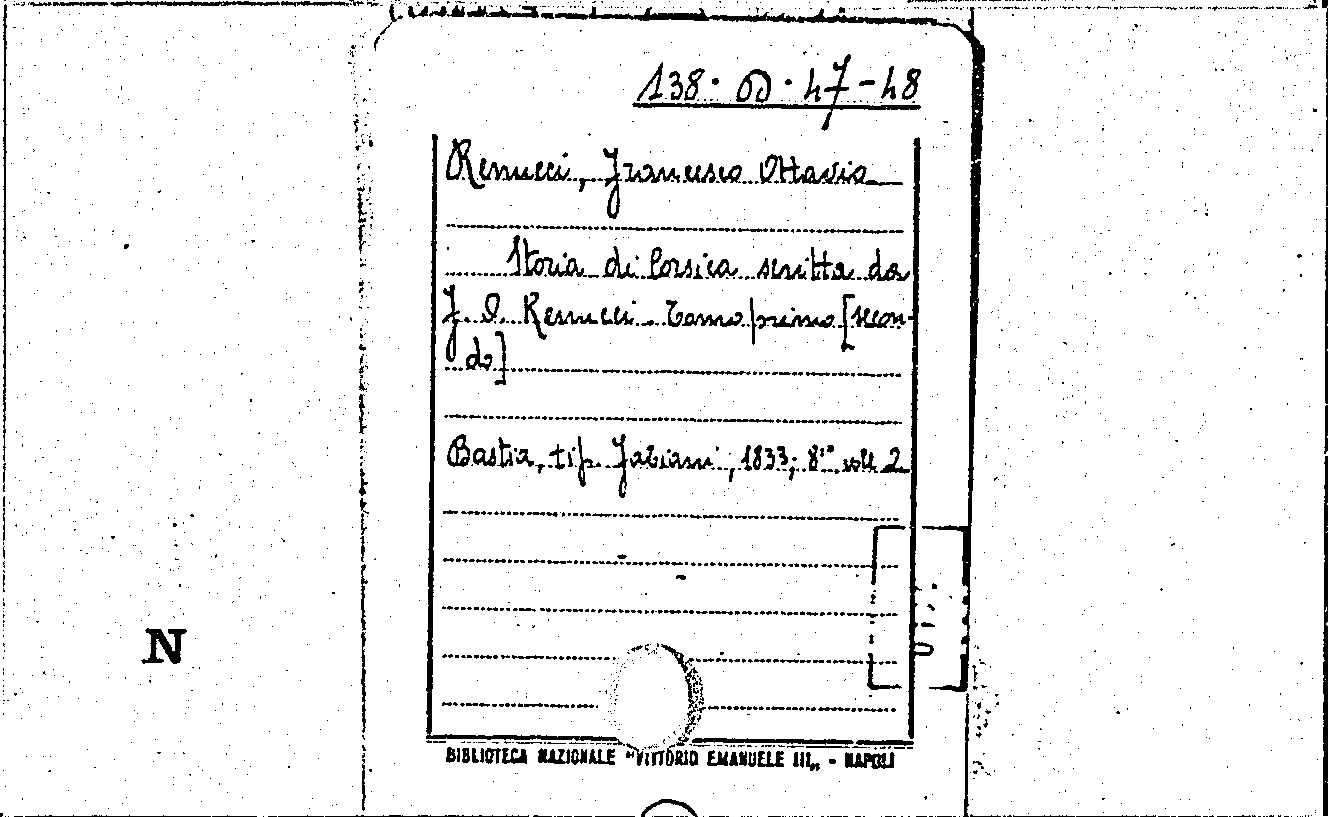 138. D. 47-48
Renucci, Francesco Ottavio
Storia di Corsica scritta da
F. O. Renucci. Tomo primo [secon-
do]
Bastia, tip. Fabiani, 1833; 8º voll 2
N
BIBLIOTECA NAZIONALE "VITTORIO EMANUELE III„ - NAPOLI